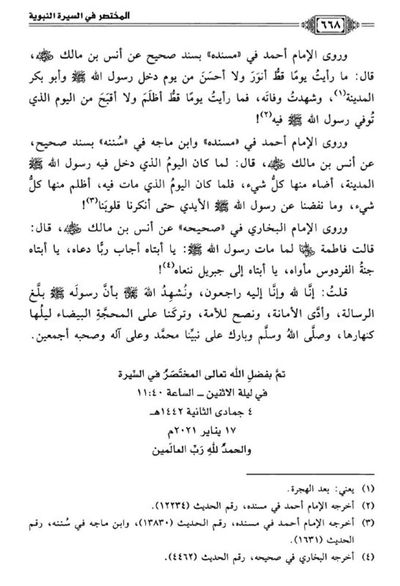 ٦٦٨
المختصر في السيرة النبوية
وروى الإمام أحمد في «مسنده» بسند صحيح عن أنس بن مالك ﷺ،
قال: ما رأيتُ يومًا قطُّ أنوَرَ ولا أحسَنَ من يوم دخل رسول الله ﷺ وأبو بكر
المدينة(١)، وشهدتُ وفاتَه، فما رأيتُ يومًا قطُّ أظلَمَ ولا أقبَحَ من اليوم الذي
تُوفي رسول الله ﷺ فيه(٢)!
وروى الإمام أحمد في «مسنده» وابن ماجه في «سُننه» بسند صحيح،
عن أنس بن مالك، قال: لما كان اليومُ الذي دخل فيه رسول الله ﷺ
المدينة، أضاء منها كلُّ شيء، فلما كان اليومُ الذي مات فيه، أظلم منها كلُّ
شيء، وما نفضنا عن رسول الله ﷺ الأيدي حتى أنكرنا قلوبَنا(٣)!
وروى الإمام البخاري في «صحيحه» عن أنس بن مالك، قال:
قالت فاطمة لما مات رسول الله ﷺ: يا أبتاه أجاب ربًّا دعاه، يا أبتاه
جنةُ الفردوس مأواه، يا أبتاه إلى جبريل ننعاه(٤)!
قلتُ: إنَّا لله وإنَّا إليه راجعون، ونُشهِدُ اللهَ ﷺ بأنَّ رسولَه ﷺ بلَّغ
الرسالة، وأدَّى الأمانة، ونصح للأمة، وتركَنا على المحجَّةِ البيضاء ليلُها
كنهارها، وصلَّى اللهُ وسلَّم وبارك على نبيِّنا محمَّد وعلى آله وصحبه أجمعين.
تمَّ بفضلِ الله تعالى المختَصَرُ في السِّيرة
في ليلة الاثنين – الساعة ١١:٤٠
٤ جمادى الثانية ١٤٤٢هـ
١٧ يناير ٢٠٢١م
والحمدُ للهِ رَبِّ العالَمين
(١) يعني: بعد الهجرة.
(٢) أخرجه الإمام أحمد في مسنده، رقم الحديث (١٢٢٣٤).
(٣) أخرجه الإمام أحمد في مسنده، رقم الحديث (١٣٨٣٠)، وابن ماجه في سُننه، رقم
الحديث (١٦٣١).
(٤) أخرجه البخاري في صحيحه، رقم الحديث (٤٤٦٢).